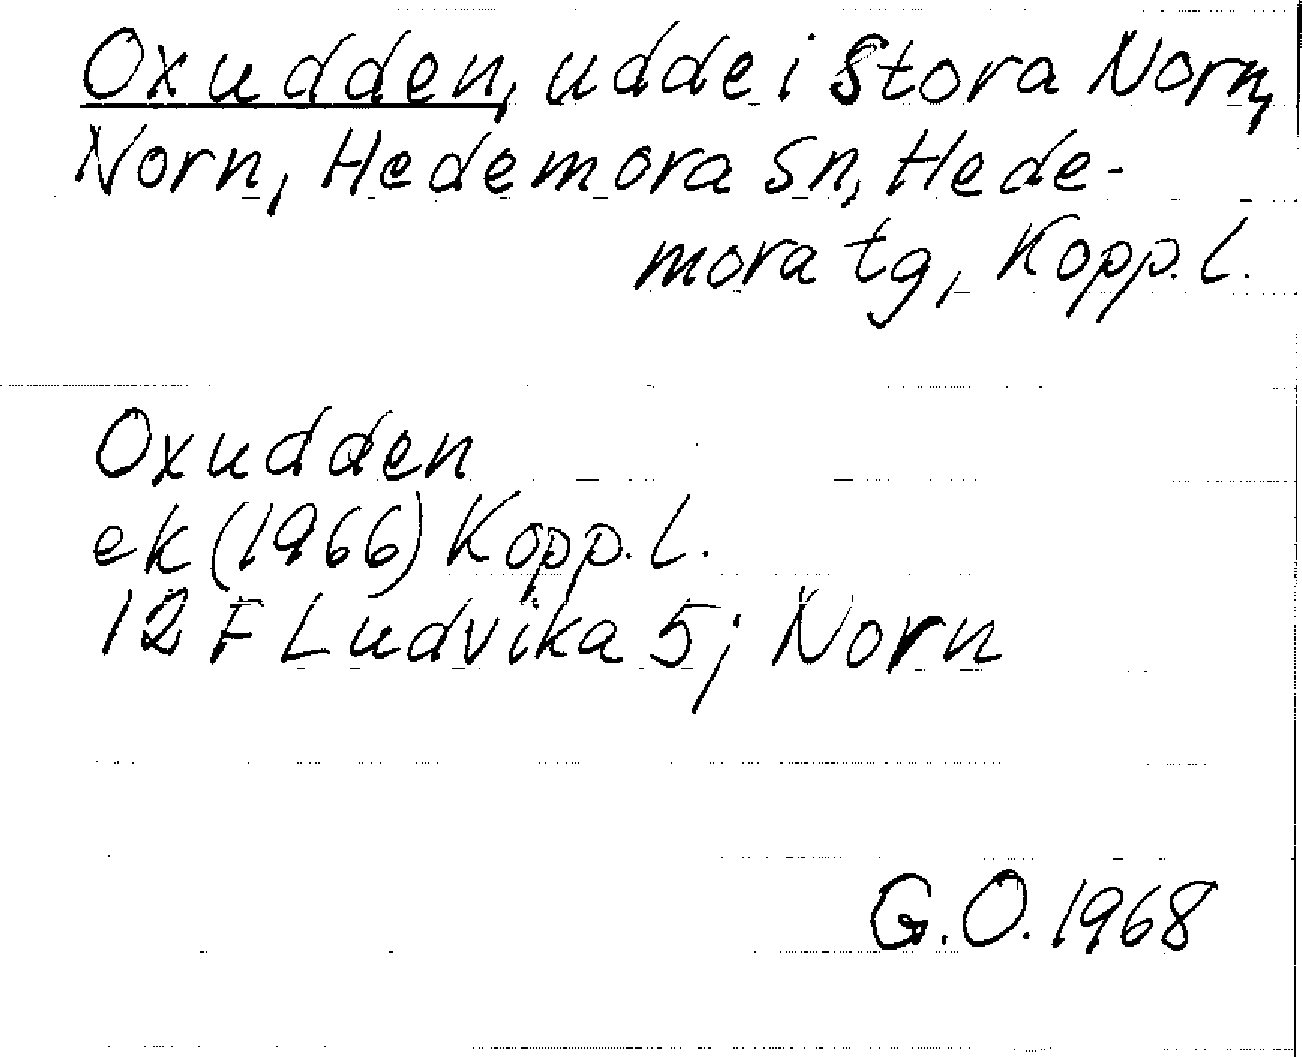 Oxudden, udde i Stora Norn,
Norn, Hedemora sn, Hede-
mora tg, Kopp. l.
Oxudden
ek (1966) Kopp. l.
12 F Ludvika 5j Norn
G.O. 1968